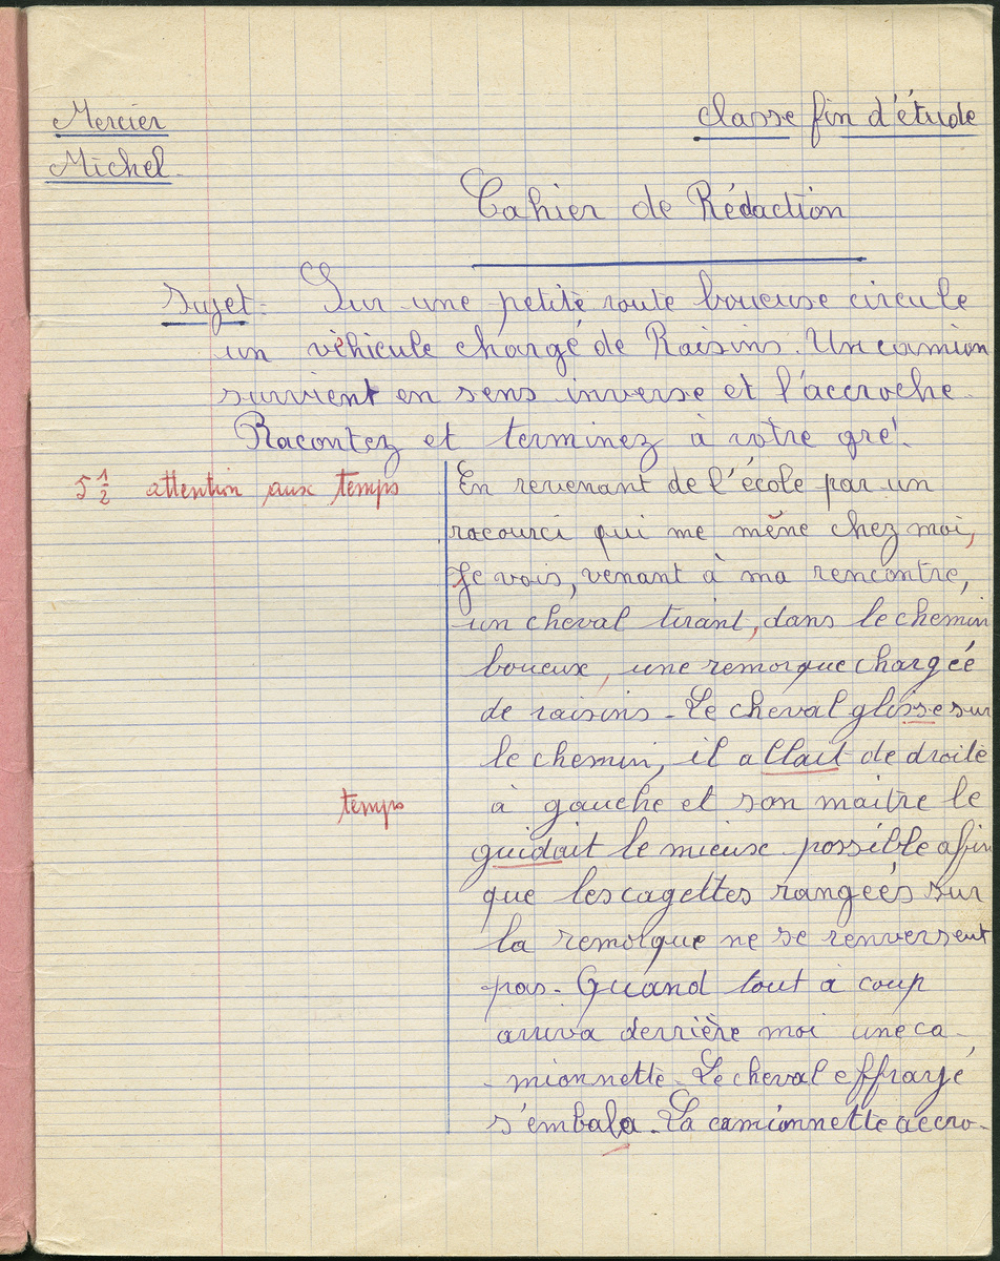 Mercier
Michel
classe fin d'étude
Cahier de Rédaction
Sujet : Sur une petite route boueuse circule
un véhicule chargé de Raisins. Un camion
survient en sens inverse et l'accroche.
Racontez et terminez à votre gré.
5 1/2 attention aux temps
En revenant de l'école par un
racourci qui me mène chez moi,
Je vois, venant à ma rencontre,
un cheval tirant, dans le chemin
boueux, une remorque chargée
de raisins. Le cheval glisse sur
le chemin, il allait de droite
temps
à gauche et son maitre le
guidait le mieux possible afin
que les cagettes rangées sur
la remorque ne se renversent
pas. Quand tout à coup
arriva derrière moi une ca-
mionnette. Le cheval effrayé
s'embala. La camionnette accro-